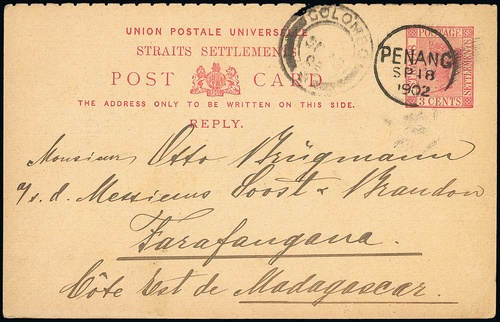 UNION POSTALE UNIVERSELLE
STRAITS SETTLEMENTS
POST CARD
THE ADDRESS ONLY TO BE WRITTEN ON THIS SIDE.
REPLY.
COLOMBO
POSTAGE
SETTLEMENTS
3 CENTS
PENANG
SP 18
1902
Monsieur Otto Brügmann
a/s. d. Messieurs Soost & Brandon
Farafangana.
Côte Est de Madagascar.